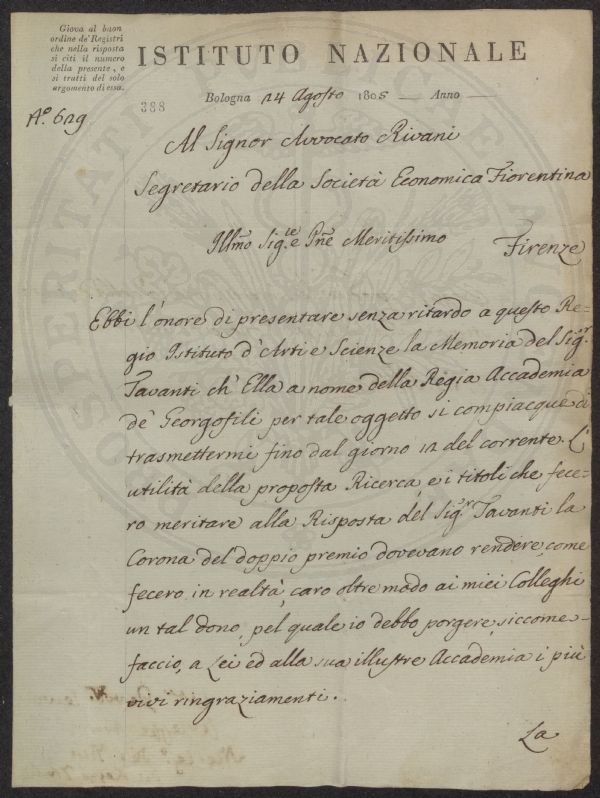 Giova al buon
ordine de' Registri
che nella risposta
si citi il numero
della presente, e
si tratti del solo
argomento di essa.
ISTITUTO NAZIONALE
388
Bologna 24 Agosto 1805 Anno
N.° 629
Al Signor Avvocato Rivani
Segretario della Società Economica Fiorentina
Illm̃o Sig.re e Pñe Meritissimo
Firenze
Ebbi l'onore di presentare senza ritardo a questo Re-
gio Istituto d'Arti e Scienze la Memoria del Sig.r
Tavanti ch' Ella a nome della Regia Accademia
de' Georgofili per tale oggetto si compiacque di
trasmettermi fino dal giorno 12 del corrente. L'
utilità della proposta Ricerca, e i titoli che fece-
ro meritare alla Risposta del Sig.r Tavanti la
Corona del doppio premio dovevano rendere, come
fecero in realtà, caro oltre modo ai miei Colleghi
un tal dono, pel quale io debbo porgere, siccome
faccio, a Lei ed alla sua illustre Accademia i più
vivi ringraziamenti.
La